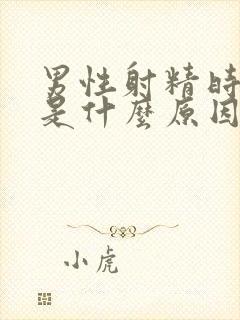 男性射精時
是什麼原因
小虎